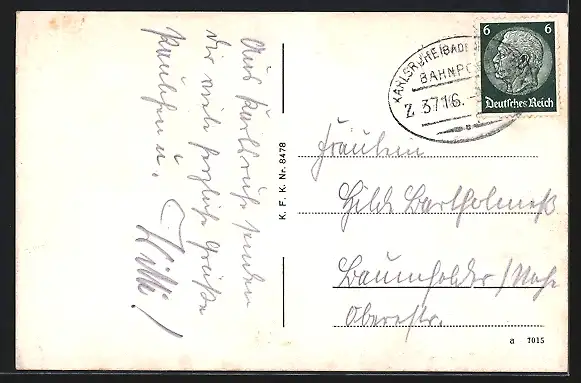 Aus Karlsruhe senden
Dir viele herzliche Grüße
u.
Willi!
K. F. K. Nr. 8478
KARLSRUHE (BADEN
BAHNPO
Z. 3716
6 6
Deutsches Reich
Fräulein
Hilde Bartholmeß
Baumholder / Nahe
Oberestr.
a 7015